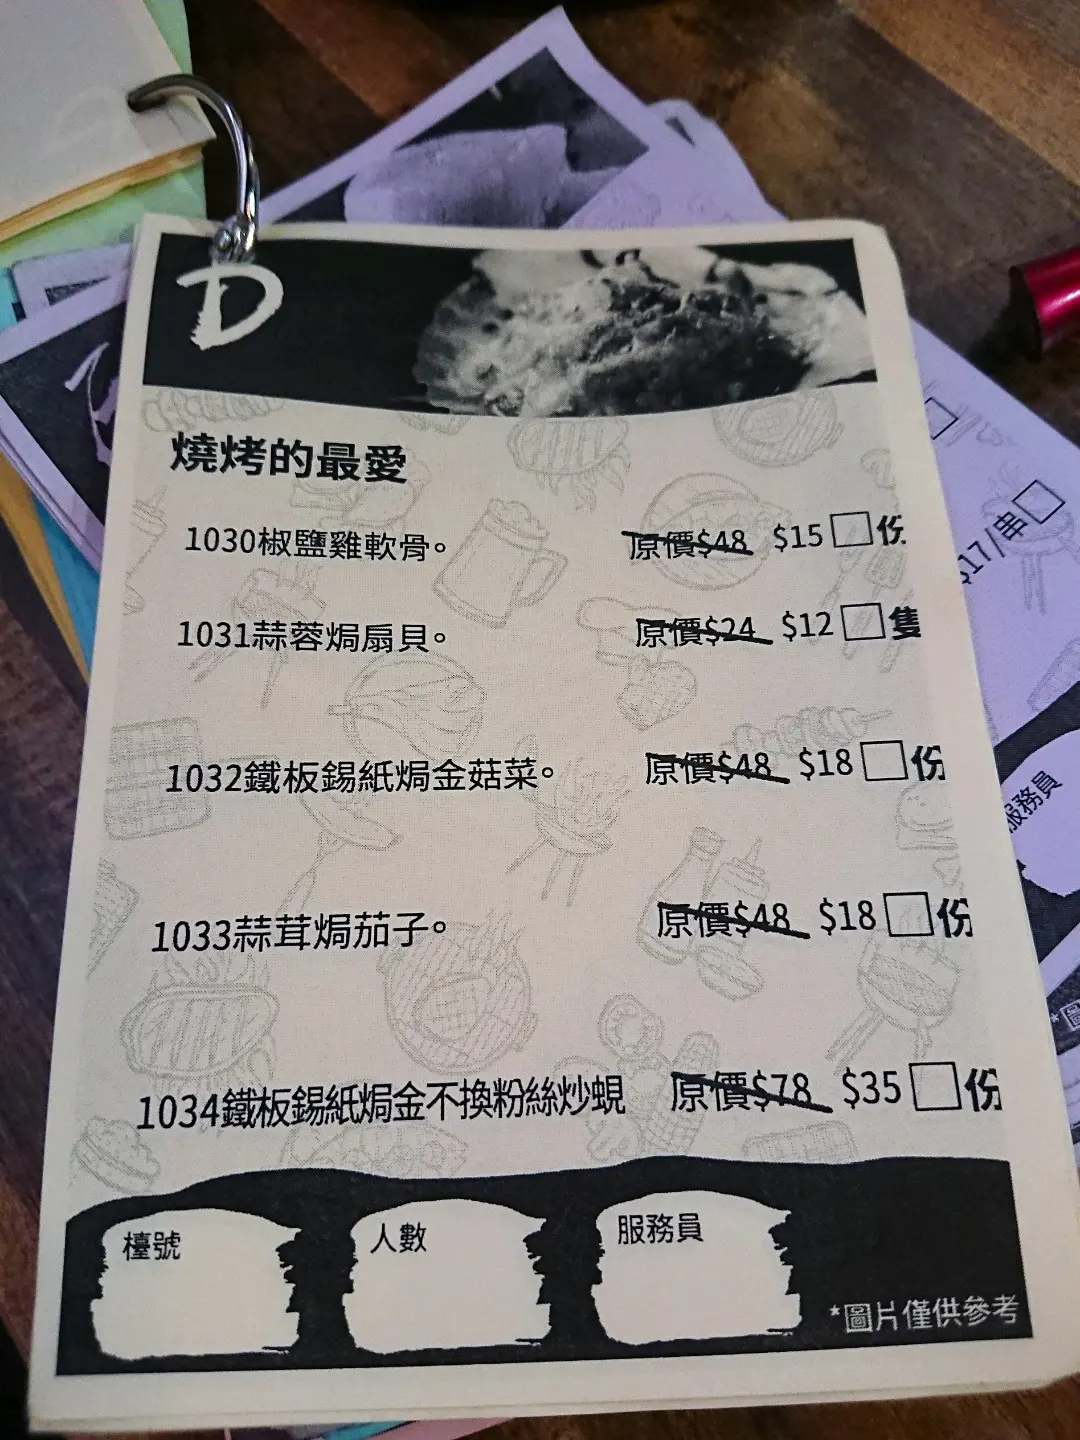 D
燒烤的最愛
1030椒鹽雞軟骨。 原價$48 $15 份
1031蒜蓉焗扇貝。 原價$24 $12 隻
1032鐵板錫紙焗金菇菜。 原價$48 $18 份
1033蒜茸焗茄子。 原價$48 $18 份
1034鐵板錫紙焗金不換粉絲炒蜆 原價$78 $35 份
檯號 人數 服務員
*圖片僅供參考
$17/串
服務員
*圖